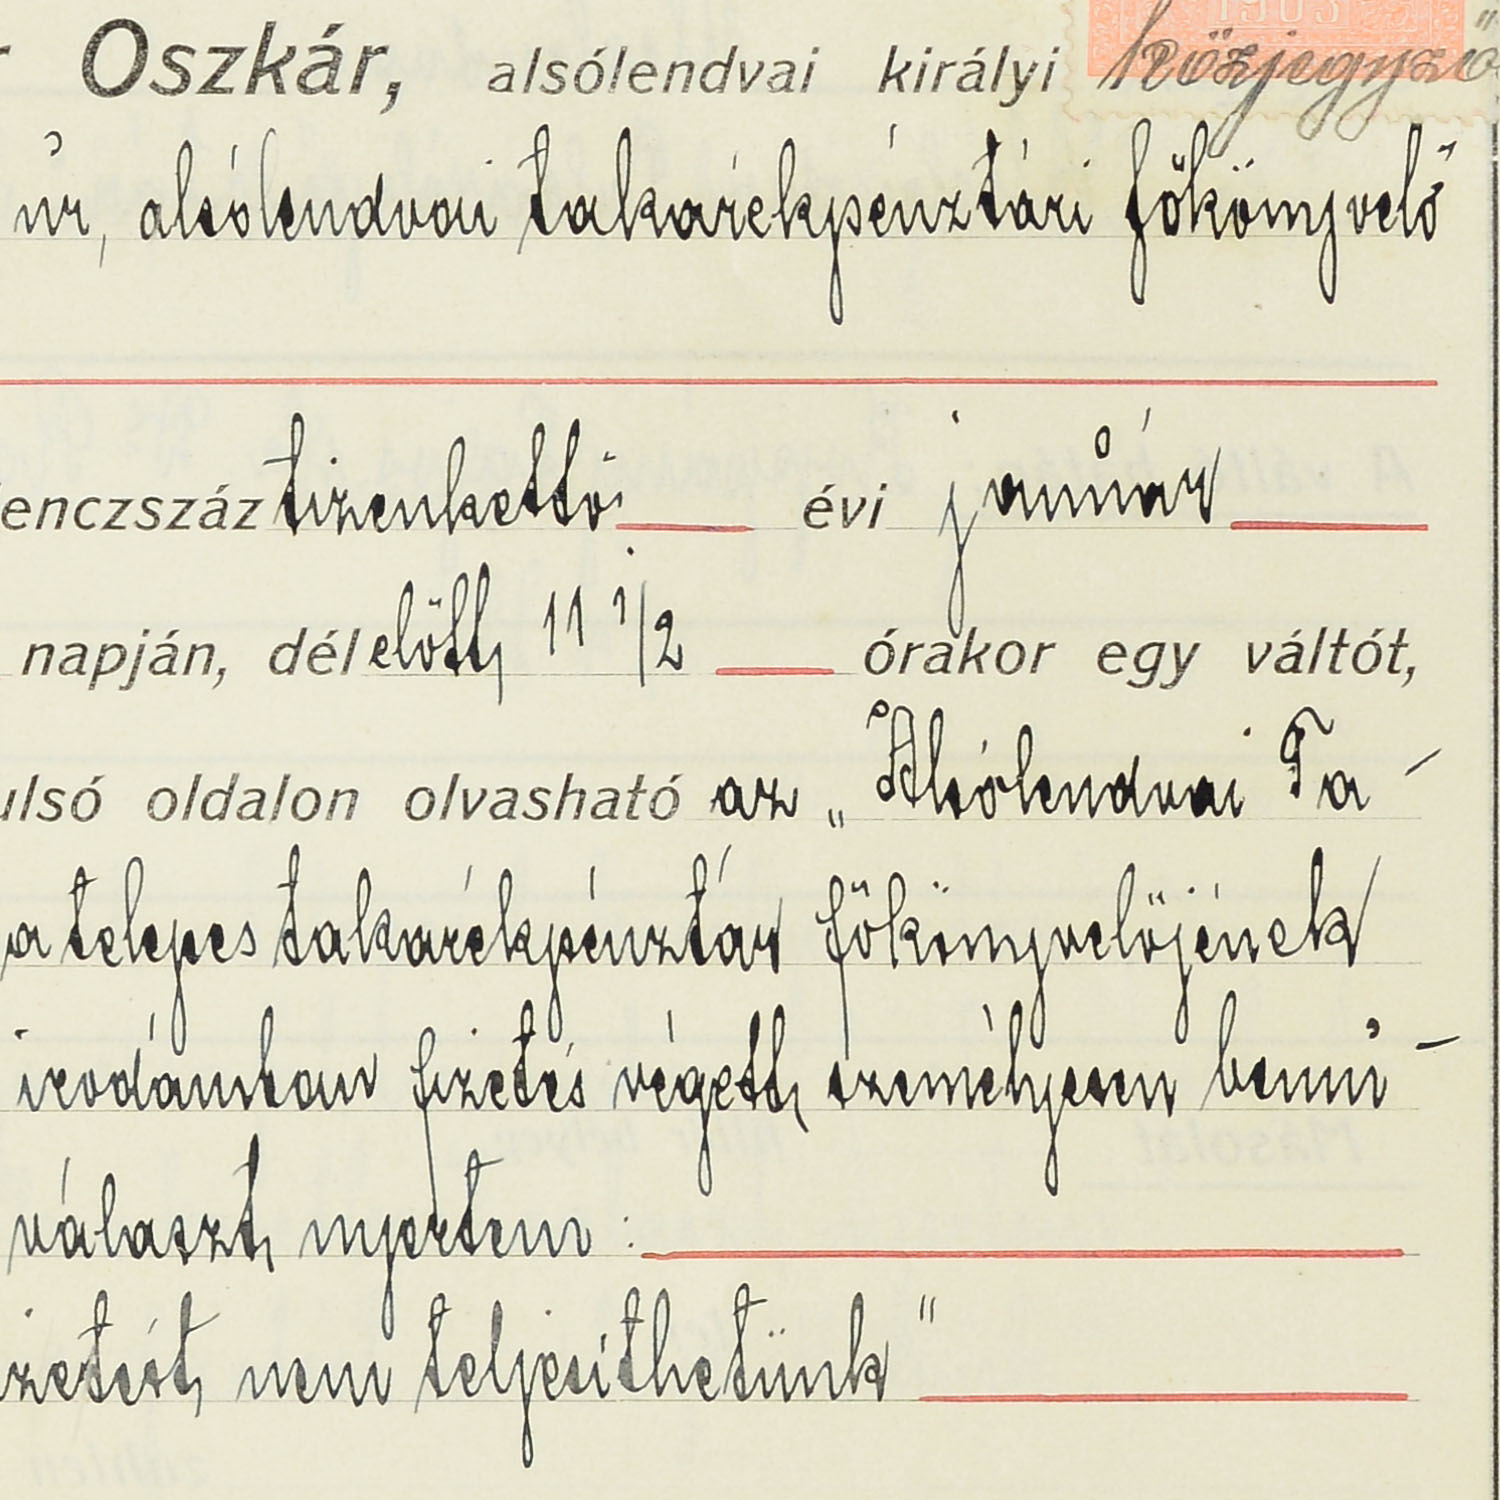 Oszkár, alsólendvai királyi közjegyző
úr, alsólendvai takarékpénztári főkönyvelő
enczszáz tizenkettő évi január
napján, délelött 11 1/2 órakor egy váltót,
ulsó oldalon olvasható az „Alsólendvai Ta-
a telepes takarékpénztár főkönyvelőjének
irodámban fizetés végett személyesen benn
választ nyertem:
izetést nem teljesíthetünk"